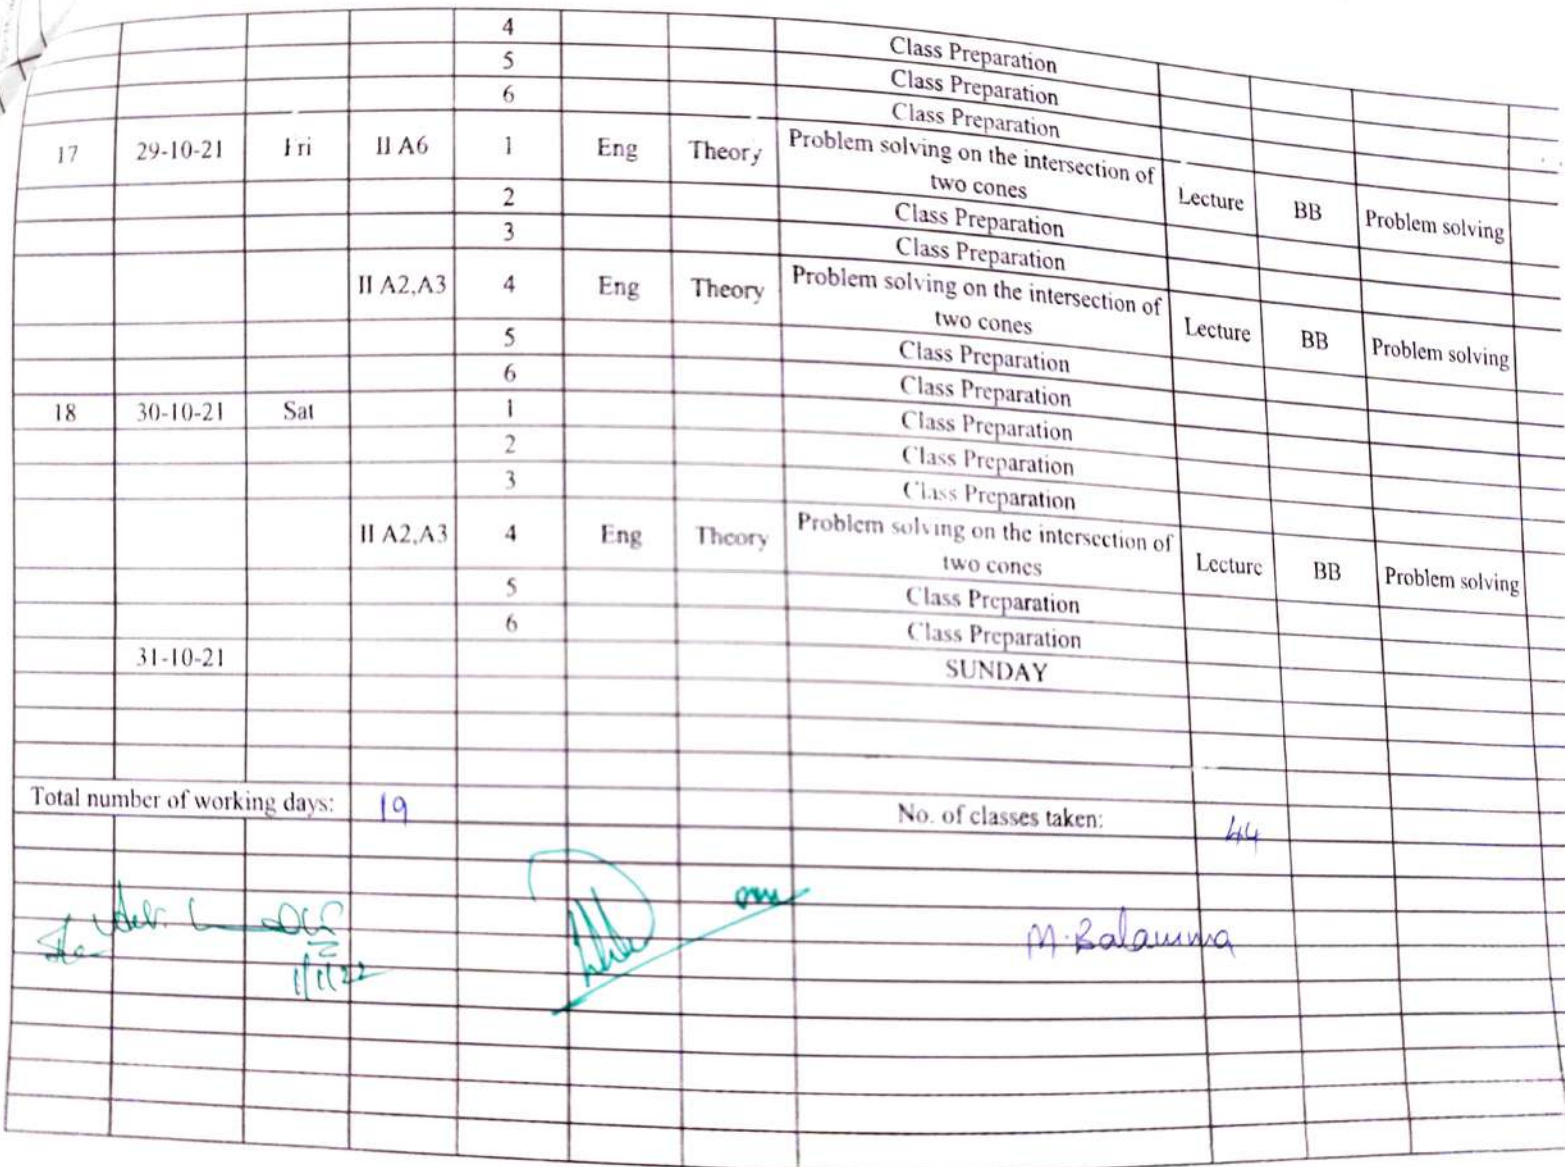 4 Class Preparation
5 Class Preparation
6 Class Preparation
17 29-10-21 Fri II A6 1 Eng Theory Problem solving on the intersection of two cones Lecture BB Problem solving
2 Class Preparation
3 Class Preparation
II A2,A3 4 Eng Theory Problem solving on the intersection of two cones Lecture BB Problem solving
5 Class Preparation
6 Class Preparation
18 30-10-21 Sat 1 Class Preparation
2 Class Preparation
3 Class Preparation
II A2,A3 4 Eng Theory Problem solving on the intersection of two cones Lecture BB Problem solving
5 Class Preparation
6 Class Preparation
31-10-21 SUNDAY
Total number of working days: 19 No. of classes taken: 44
M. Balamma
1/1/22